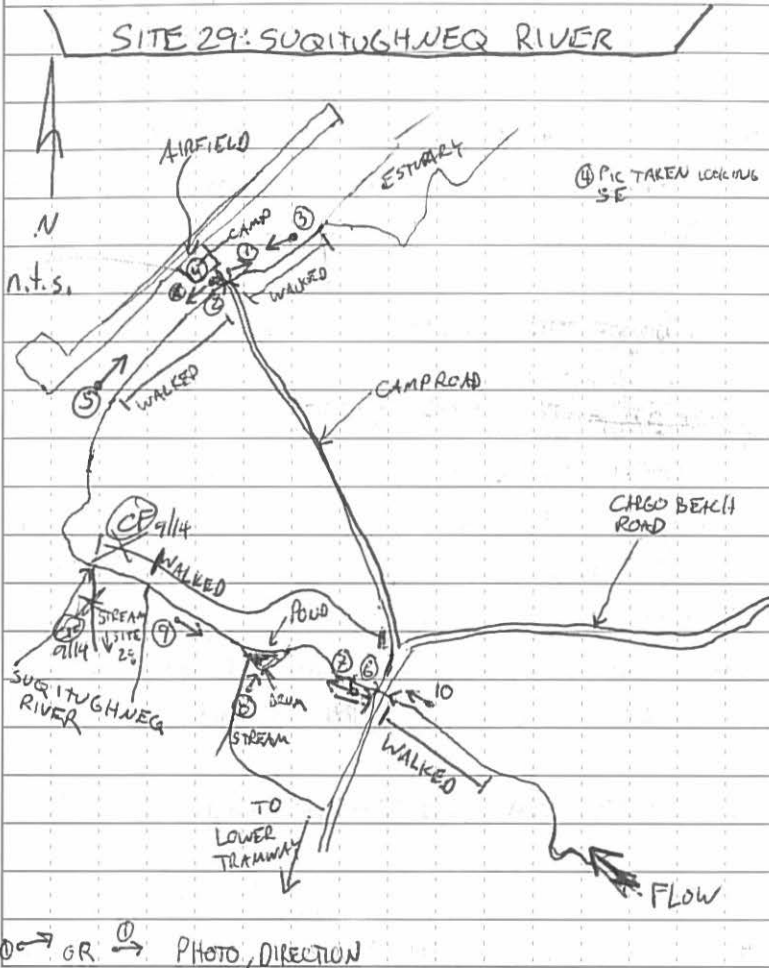 SITE 29: SUQITUGHNEQ RIVER
AIRFIELD
ESTUARY
④ PIC TAKEN LOOKING
SE
N
n.t.s.
CAMP
③
①
④
②
WALKED
WALKED
⑤
CAMP ROAD
CARGO BEACH
ROAD
CF 9/14
WALKED
POND
STREAM
SITE
28
9/14
⑨
⑦ ⑥
10
SUQITUGHNEQ
RIVER
⑧
DRUM
STREAM
WALKED
TO
LOWER
TRAMWAY
FLOW
① OR ① PHOTO, DIRECTION